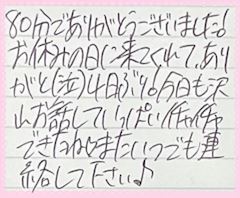 80分でありがとうございました!
お休みの日に来てくれて、あり
がと(泣)4日ぶり!今日も沢
山お話していっぱいイチャイチャ
できたね♡またいつでも連
絡して下さい♪